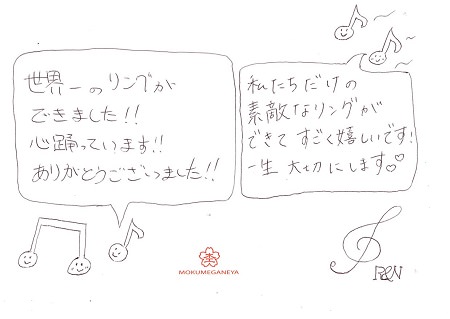 世界一のリングが
できました!!
心踊っています!!
ありがとうございました!!
私たちだけの
素敵なリングが
できて すごく嬉しいです!
一生 大切にします♡♡
R&N
MOKUMEGANEYA